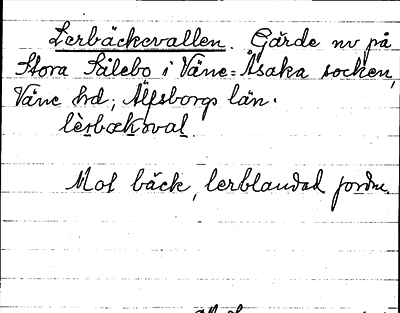 Lerbäckevallen. Gärde nv på
Stora Sålebo i Väne-Åsaka socken,
Väne hd, Älfsborgs län.
lèrbækəval
Mot bäck, lerblandad jordm.